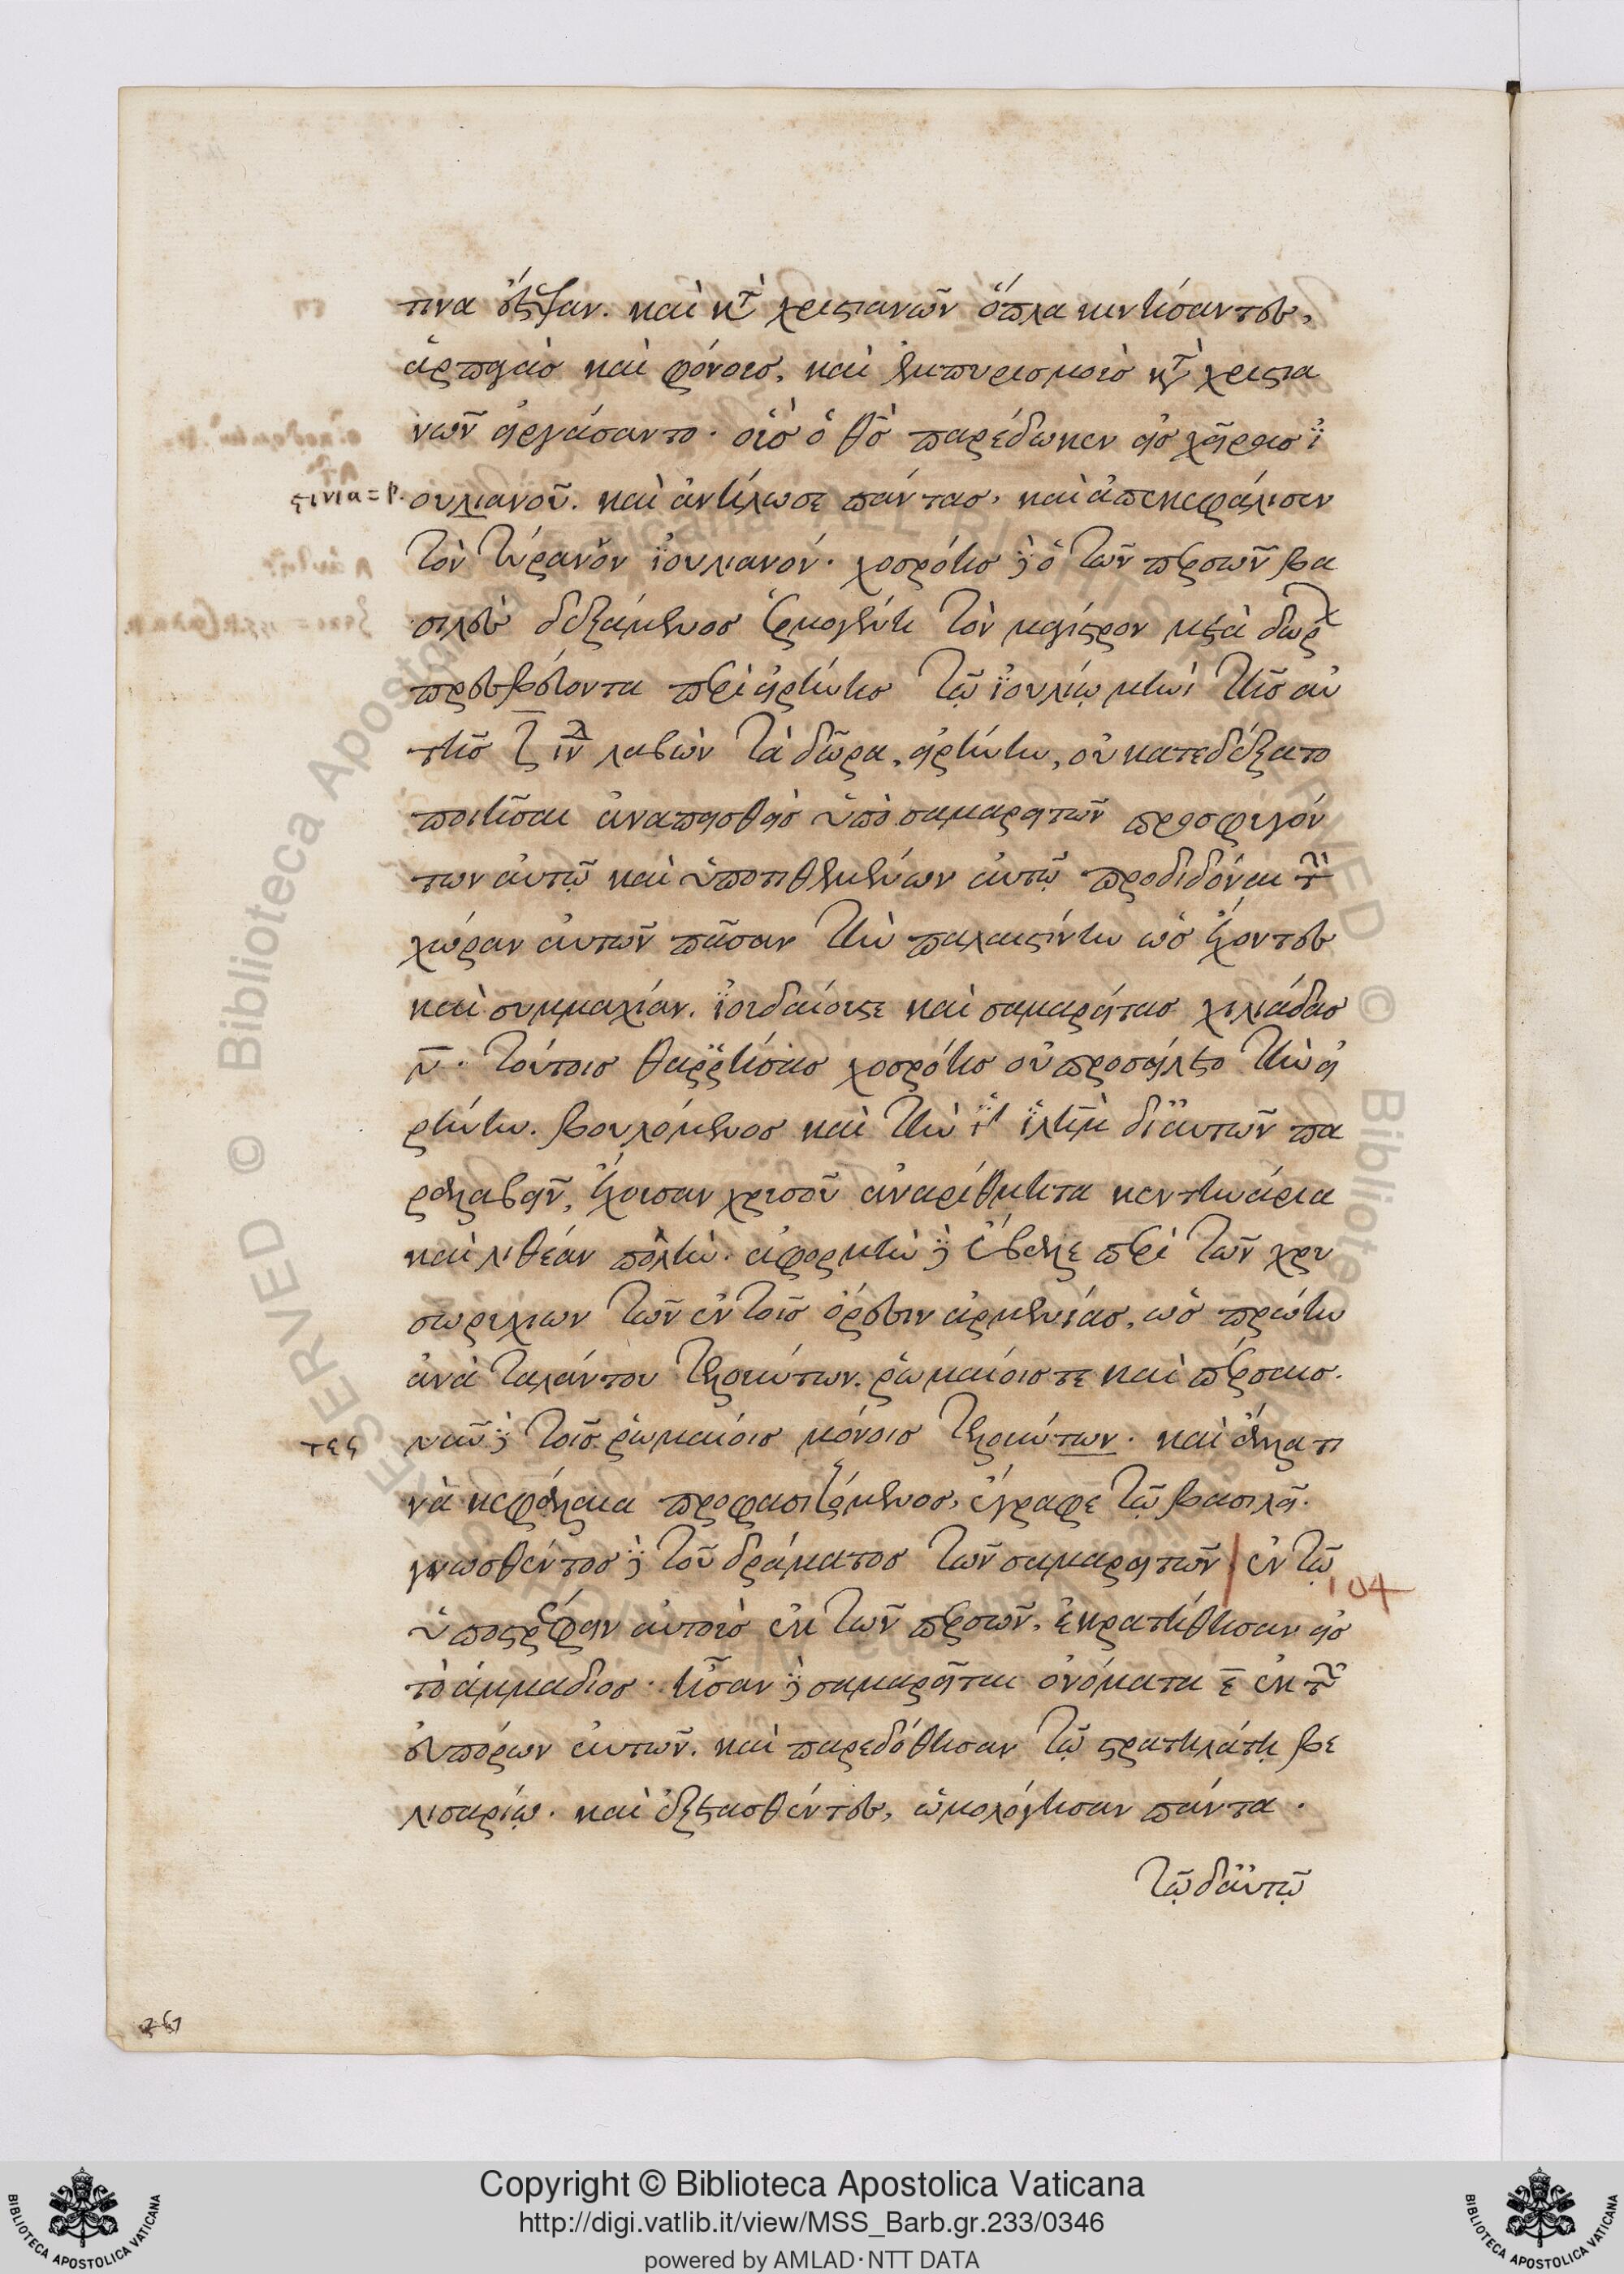 τινα ἔστεψαν. καὶ κατὰ χριστιανῶν ὅπλα κινήσαντες,
ἁρπαγαῖς καὶ φόνοις, καὶ ἐμπυρισμοῖς κατὰ χριστια
νῶν εἰργάσαντο. οἷς ὁ θς παρέδωκεν εἰς χεῖρας ϊ
στινια = ρ.
ουλιανοῦ. καὶ ἀνήλωσε πάντας, καὶ ἀπεκεφάλισεν
τὸν τύρανον ϊουλιανόν. χοσρόης δὲ ὁ τῶν περσῶν βα
σιλεὺς δεξάμενος ἑρμογένη τὸν μάγιστρον μετὰ δώρων
πρεσβεύοντα περὶ εἰρήνης τῷ ϊουλίῳ μηνὶ τῆς αὐ
τῆς ζ ινδ λαβὼν τὰ δῶρα, εἰρήνην, οὐ κατεδέξατο
ποιῆσαι ἀναπεισθεὶς ὑπὸ σαμαρειτῶν προσφυγόν
των αὐτῷ καὶ ὑποτιθεμένων αὐτῷ προδιδόναι τὴν
χώραν αὐτῶν πᾶσαν τὴν παλαιστίνην ὡς ἔχοντες
καὶ συμμαχίαν. ϊουδαίους τε καὶ σαμαρείτας χιλιάδας
ν. τούτοις θαρρήσας χοσρόης οὐ προσήλετο τὴν εἰ
ρήνην. βουλόμενος καὶ τὴν ϊλημ δι αὐτῶν πα
ραλαβεῖν, ἔχουσαν χρυσοῦ ἀναρίθμητα κεντηνάρια
καὶ λιθέαν πολλήν. ἀφορμὴν δὲ ἔβαλε περὶ τῶν χρυ
σωρυχίων τῶν ἐν τοῖς ὄρεσιν ἀρμενίας, ὡς πρώην
ἀνὰ ταλάντου τελούντων. ῥωμαίοις τε καὶ πέρσαις.
τες
νῦν δὲ τοῖς ῥωμαίοις μόνοις τελούντων. καὶ ἄλλα τι
νὰ κεφάλαια προφασιζόμενος, ἔγραφε τῷ βασιλεῖ.
γνωσθέντος δὲ τοῦ δράματος τῶν σαμαρειτῶν | ἐν τῷ
104
ὑποστρέφειν αὐτοὺς ἐκ τῶν περσῶν, ἐκρατήθησαν εἰς
τὸ ἀμμάδιος. ἦσαν δὲ σαμαρεῖται ὀνόματα ε ἐκ τῶν
εὐπόρων αὐτῶν. καὶ παρεδόθησαν τῷ στρατηλάτῃ βε
λισαρίῳ. καὶ ἐξετασθέντες, ὡμολόγησαν πάντα.
τῷ δ αὐτῷ
Copyright © Biblioteca Apostolica Vaticana
http://digi.vatlib.it/view/MSS_Barb.gr.233/0346
powered by AMLAD·NTT DATA